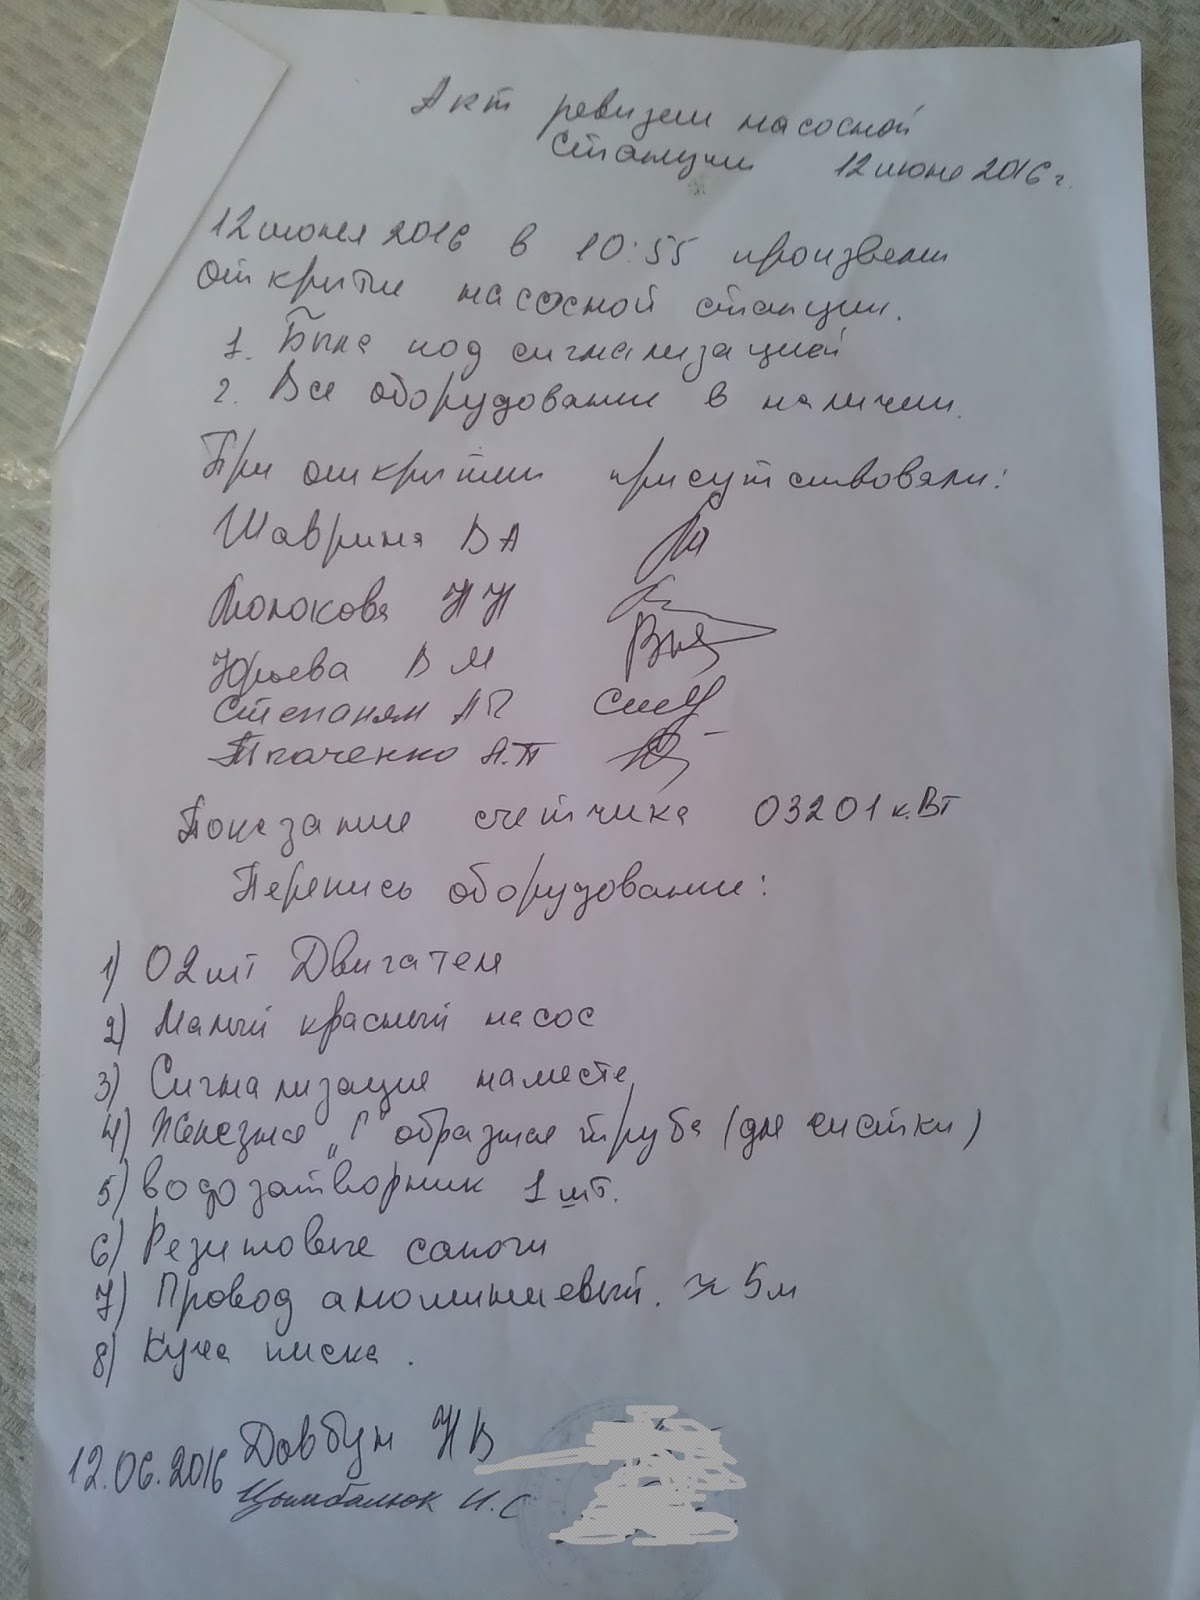 Акт ревизии насосной
станции 12 июня 2016 г.
12 июня 2016 в 10:55 произвели
открытие насосной станции.
1. Была под сигнализацией
2. Все оборудование в наличии.
При открытии присутствовали:
Шаврина В А
Полокова Н Н
Юрьева В М
Степанян А П
Ткаченко А.П
Показание счетчика 03201 к.Вт
Перепись оборудование:
1) 02 шт Двигателя
2) Малый красный насос
3) Сигнализация наместе
4) Железная „Г" образная труба (для чистки)
5) водозатворник 1 шт.
6) Резиновые сапоги
7) Провод алюминиевый. ≈ 5м
8) Куча писка.
12.06.2016 Довбун Н В
Цымбалюк И.С